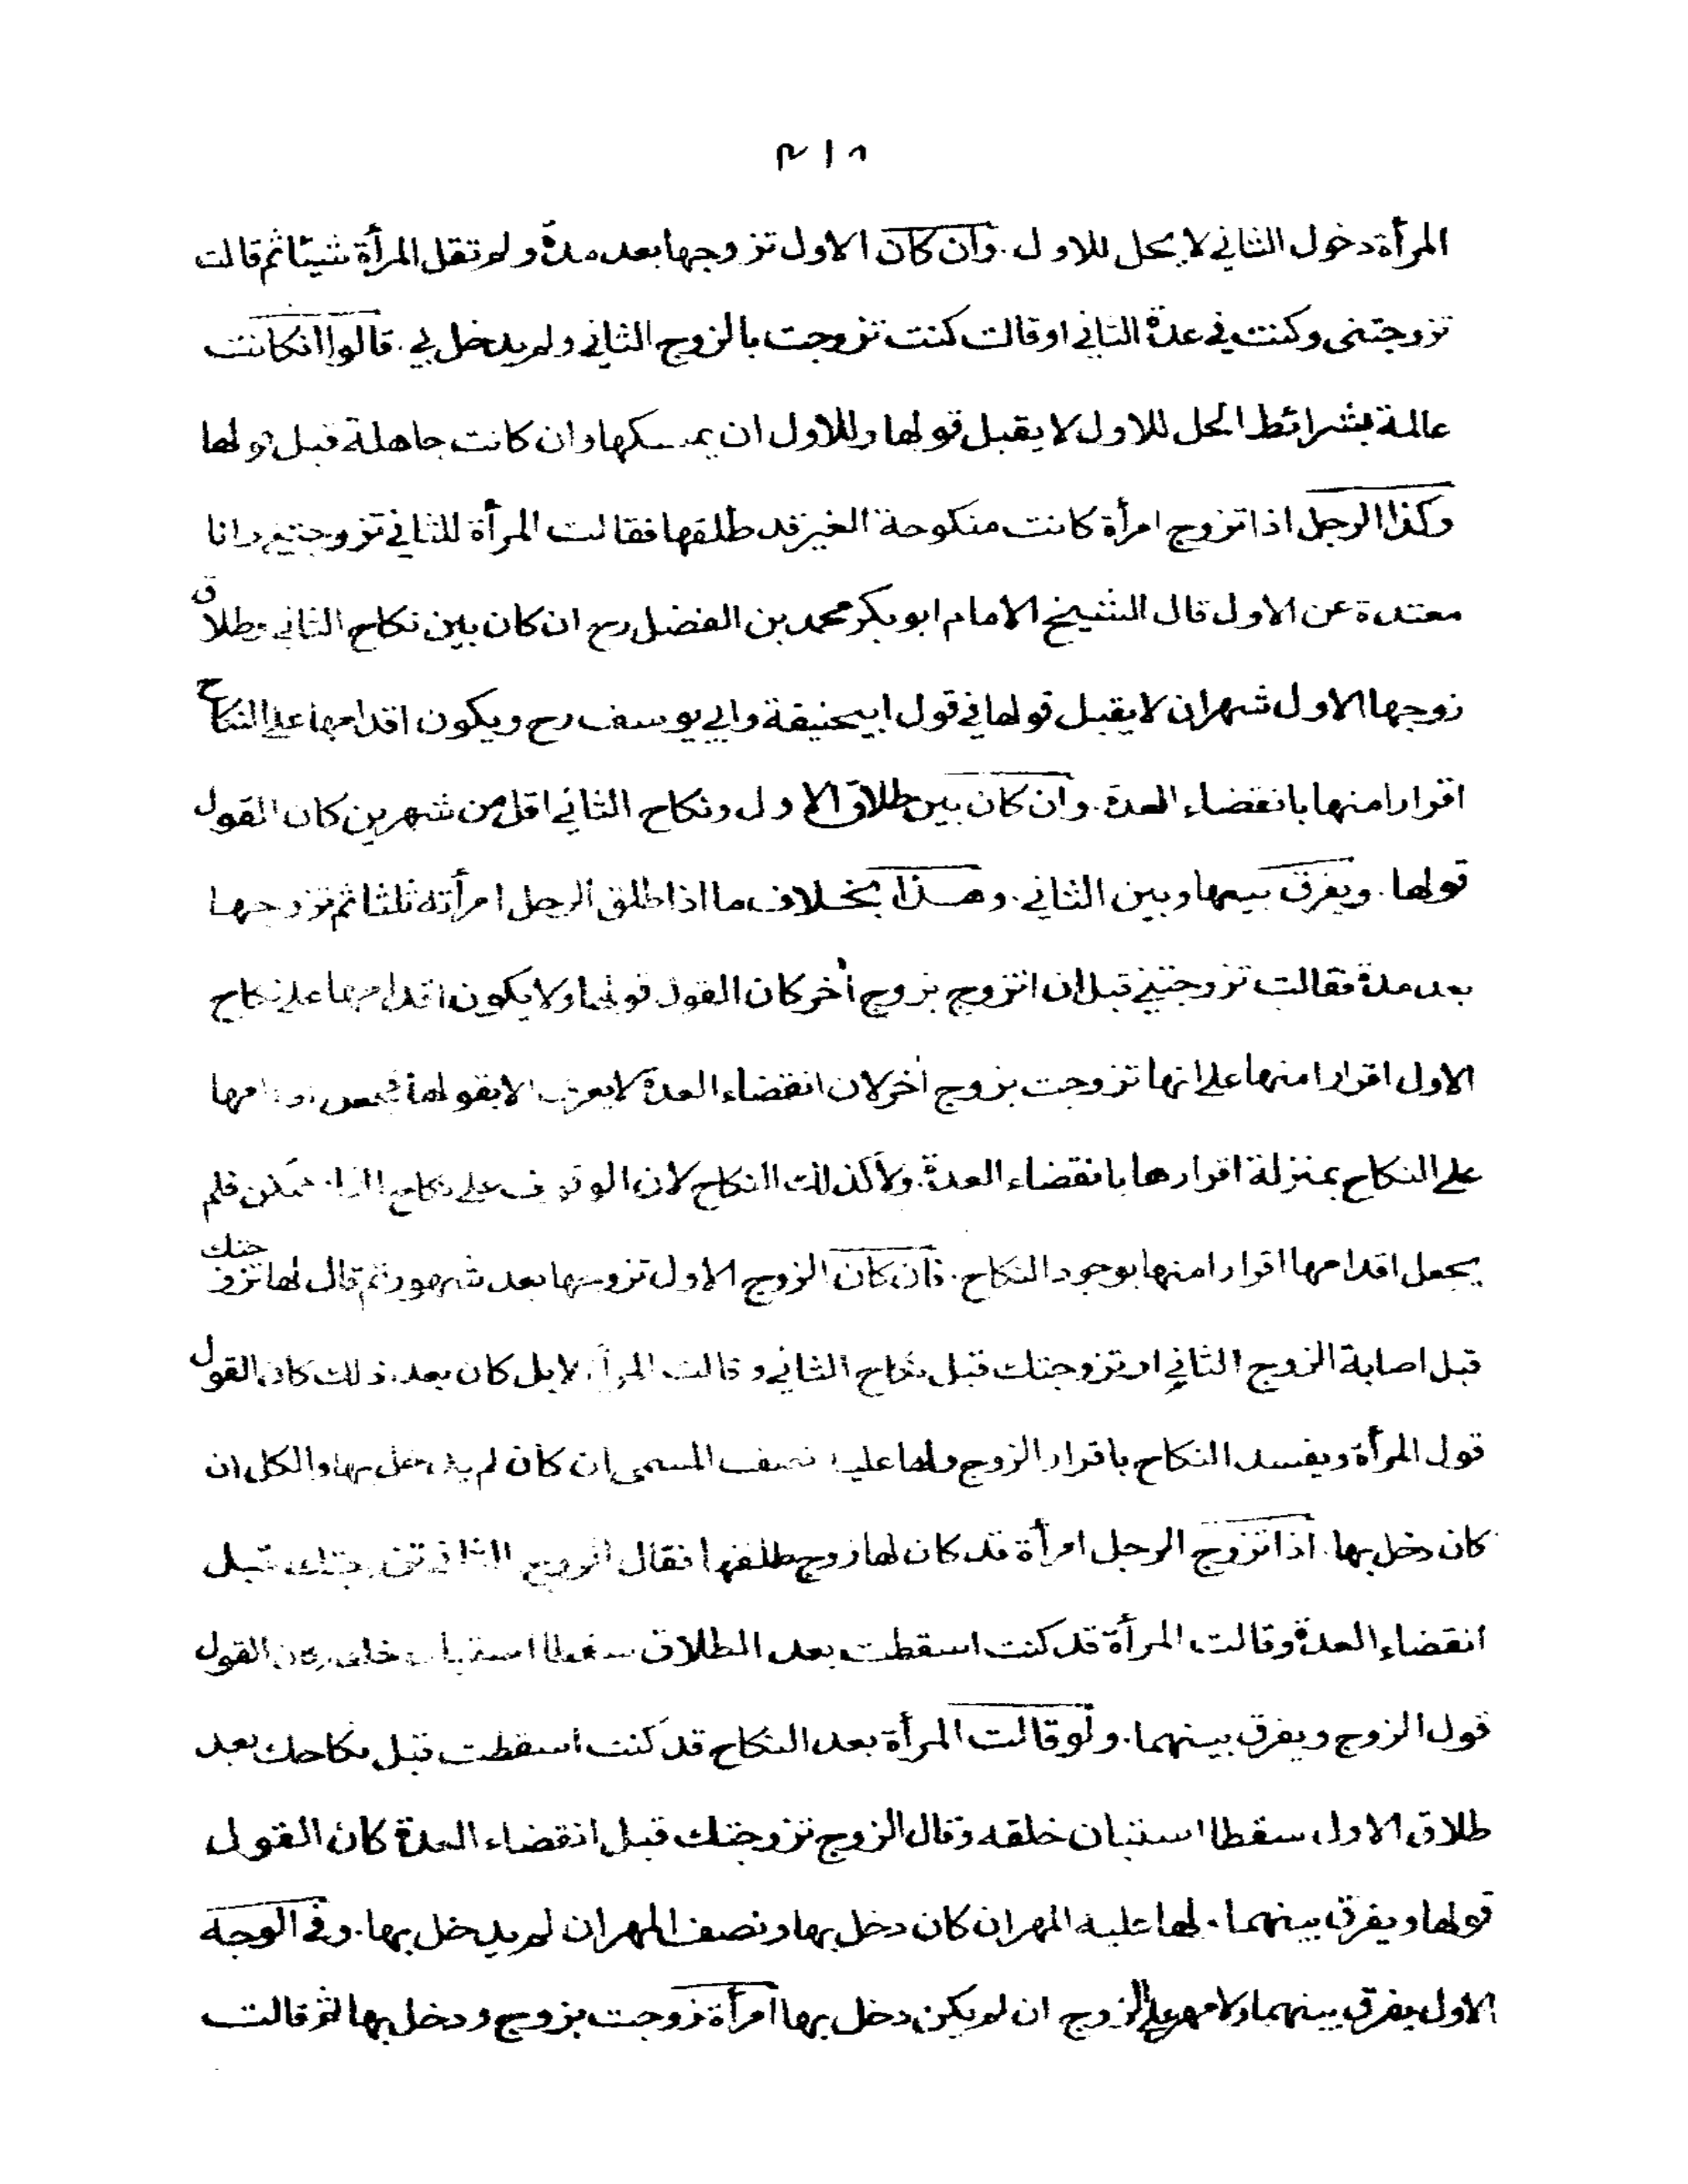 ٣١٨
المرأة دخول الثاني لا يحل للاول. وان كان الاول تزوجها بعد مدة ولم تقل المرأة شيئا ثم قالت
تزوجتنى وكنت في عدة الثاني او قالت كنت تزوجت بالزوج الثاني ولم يدخل بي. قالوا انكانت
عالمة بشرائط الحل للاول لا يقبل قولها وللاول ان يمسكها وان كانت جاهلة قبل قولها
وكذا الرجل اذا تزوج امرأة كانت منكوحة الغير قد طلقها فقالت المرأة للثاني تزوجتني وانا
معتدة عن الاول قال الشيخ الامام ابو بكر محمد بن الفضل رح ان كان بين نكاح الثاني وطلاق
زوجها الاول شهران لا يقبل قولها في قول ابيحنيفة وابي يوسف رح ويكون اقدامها على النكاح
اقرارا منها بانقضاء العدة. وان كان بين طلاق الاول ونكاح الثاني اقل من شهرين كان القول
قولها. ويفرق بينها وبين الثاني. وهذا بخلاف ما اذا طلق الرجل امرأته ثلثا ثم تزوجها
بعد مدة فقالت تزوجتني قبل ان اتزوج بزوج أخر كان القول قولها ولا يكون اقدامها على نكاح
الاول اقرارا منها على انها تزوجت بزوج أخر لان انقضاء العدة لا يعرف الا بقولها فجعل اقدامها
على النكاح بمنزلة اقرارها بانقضاء العدة. ولا كذلك النكاح لان الوقوف على نكاح الثاني ممكن فلم
يجعل اقدامها اقرارا منها بوجود النكاح. فان كان الزوج الاول تزوجها بعد شهور ثم قال لها تزوجتك
قبل اصابة الزوج الثاني او تزوجتك قبل نكاح الثاني وقالت المرأة لا بل كان بعد ذلك كان القول
قول المرأة ويفسد النكاح باقرار الزوج ولها عليه نصف المسمى ان كان لم يدخل بها والكل ان
كان دخل بها. اذا تزوج الرجل امرأة قد كان لها زوج طلقها فقال الزوج الثاني تزوجتك قبل
انقضاء العدة وقالت المرأة قد كنت اسقطت بعد الطلاق سقطا استبان خلقه كان القول
قول الزوج ويفرق بينهما. ولو قالت المرأة بعد النكاح قد كنت اسقطت قبل نكاحك بعد
طلاق الاول سقطا استبان خلقه وقال الزوج تزوجتك قبل انقضاء العدة كان القول
قولها ويفرق بينهما. لها عليه المهر ان كان دخل بها ونصف المهر ان لم يدخل بها. وفى الوجه
الاول يفرق بينهما ولا مهر على الزوج ان لم يكن دخل بها امرأة تزوجت بزوج ودخل بها ثم قالت